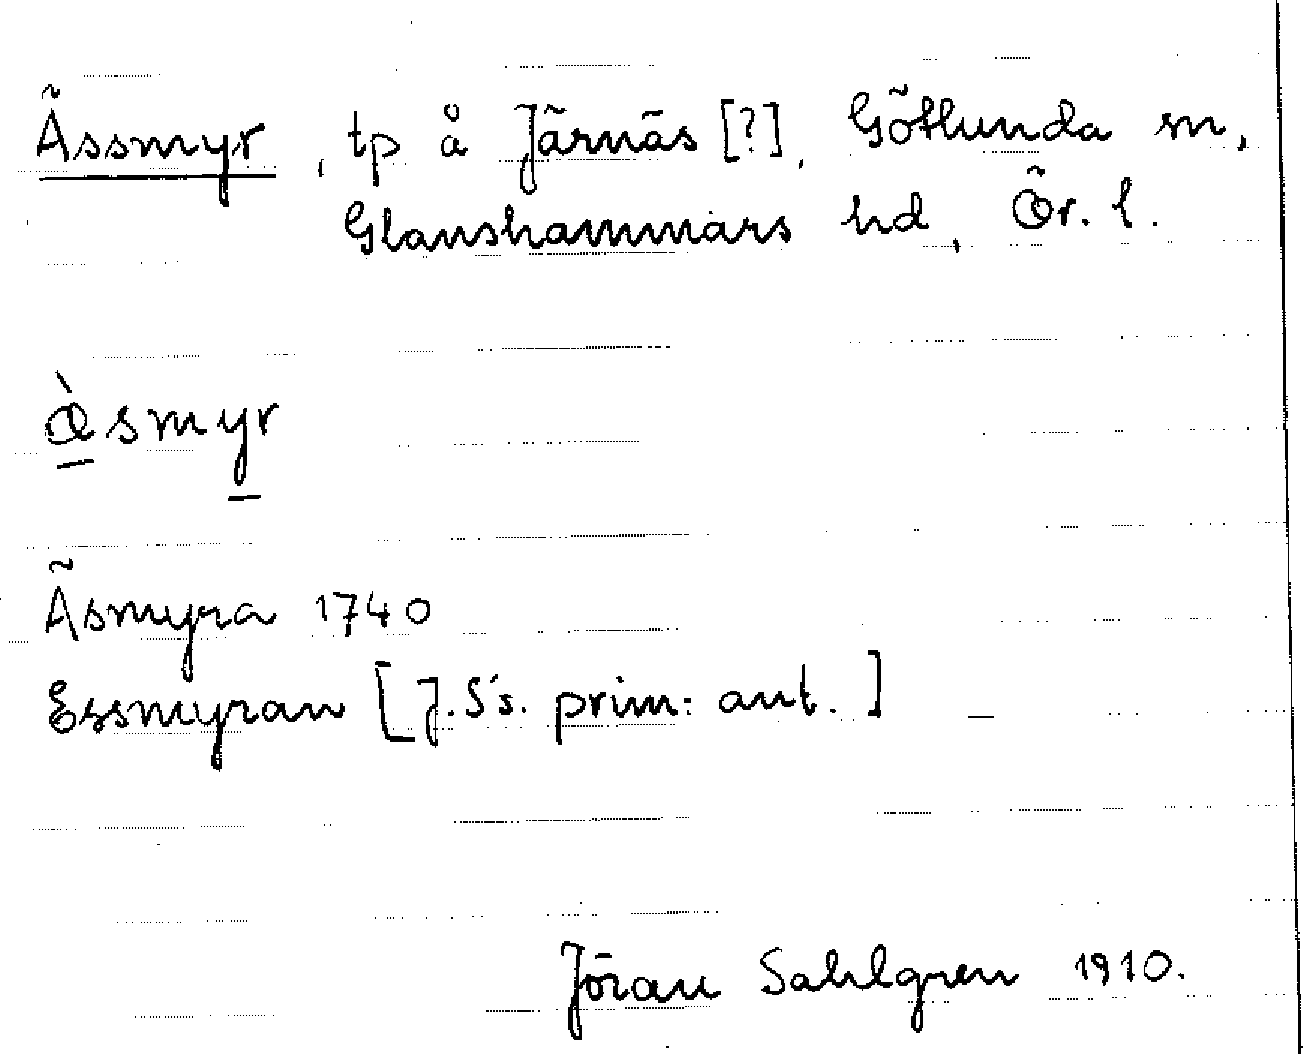 Ässmyr, tp å Järnäs [?], Götlunda sn,
Glanshammars hd, Ör. l.
æ̀smyr
Äsmyra 1740
Essmyran [J.S's. prim: ant.]
Jöran Sahlgren 1910.